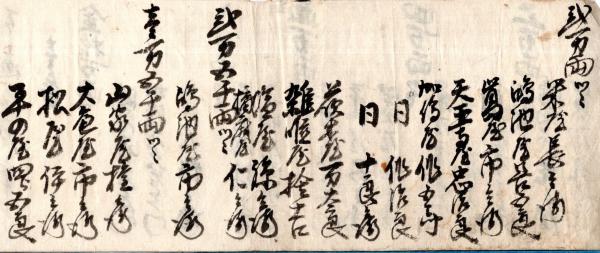 弐万両ツヽ
米屋長兵衛
鴻池屋善五郎
鴻屋市兵衛
天王寺屋忠次郎
加嶋屋作五郎
同 作次郎
同 十郎兵衛
茨木屋万太郎
雑喉屋捨吉
塩屋源兵衛
播磨屋仁兵衛
弐万五千両ツヽ
鴻池屋市兵衛
壱万五千両ツヽ
山家屋権兵衛
大庭屋市兵衛
松屋伊兵衛
平野屋四郎五郎